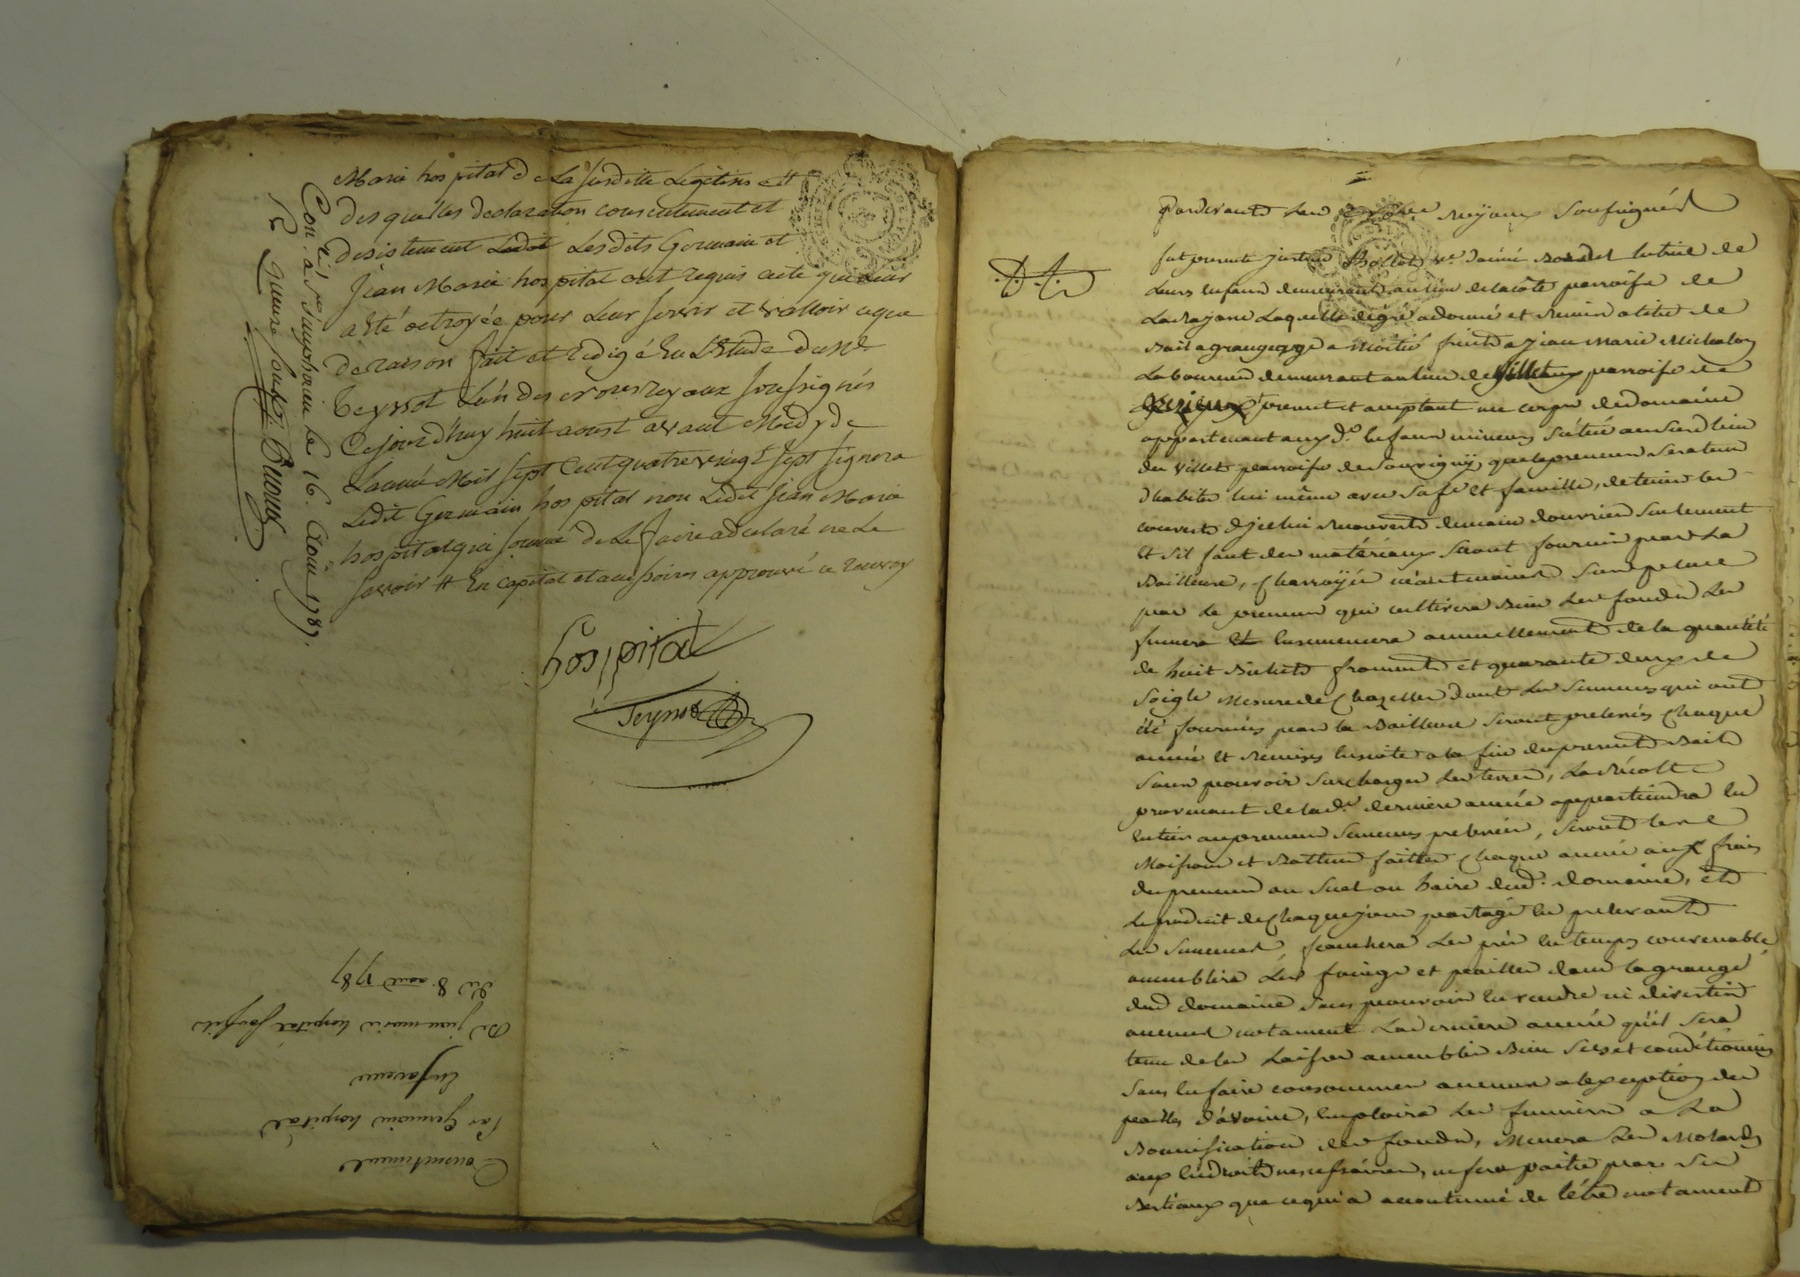 Marie hospital de La susditte Legitime #
des quelles declaration consentement et
desistement Ledit Lesdits Germain et
Jean Marie hospital ont requis acte qui leur
a été octroyée pour Leur servir et valloir ce que
de raison fait et redigé en L'Etude de Me
Teyssot L'un des notaires royaux soussignés
Cejourd'huy huit aoust avant Midy de
L'année Mil sept Cent quatre vingt sept signera
Ledit Germain hospital non Ledit Jean Marie
hospital qui sommé de Le faire a declaré ne Le
savoir # En capital et accessoires approuvé ce renvoy
hospital
Teyssot
Con. à St Simphorien le 16. Aout 1787.
Consentement
Par Germain hospital
En faveur
De jean marie hospital son fils
Du 8 aout 1787
Pardevant Les royaux Soussignés
fut presente de
Leurs enfans demeurant au lieu de la côte parroisse de
Larajasse Laquelle de gré a donné et remis a titre de
Bail a grangeage a Moitié fruits a Jean Marie Michalon
Laboureur demeurant au lieu de parroisse de
prenent et acceptant un corps de domaine
appartenant aux d. enfans mineurs Situé au Susd lieu
du Villet parroisse de que le preneur Sera tenu
d'habiter lui même avec Sa fe et famille, de tenir les
couverts d'jcelui recouverts de main d'ouvrier Seulement
Et S'il faut des matériaux Seront fournis par La
Bailleuse, charroyés Sur place
par Le preneur qui cultivera Bien Les fonds Les
fumera Ensemencera annuellement de la quantité
de huit Bichets froment et quarante deux de
Soigle Mesure de Chazelles dont Les Semences qui ont
été fournies par la Bailleuse Seront prelevées chaque
année Et Remises Ensuite a la fin du present Bail
Sans pouvoir Surcharger Les terres, La Récolte
provenant de lad. derniere année appartiendra En
Entier au preneur Semences prelevées, Seront Les
Moissons et Batture faittes chaque année aux frais
du preneur au Suel ou haire dud. domaine, Et
Le produit de chaque jour partagé En prelevant
Les Semences, fauchera Les prés En temps convenable,
amenblera Les foings et pailles dans la grange
dud domaine Sans pouvoir En vendre ni divertir
aucunes notament La derniere année qu'il Sera
tenu de Les Laisser amenblés Bien Secs et conditionnés
Sans En faire consommer aucunes a l'exception des
pailles d'avoine, Emploira Les fumiers a La
Bonnification des fonds, Menera Les Molards
aux Endroits necessaires, ne fera paitre par Ses
Bestiaux que ce qui a accoutumé de l'être notament